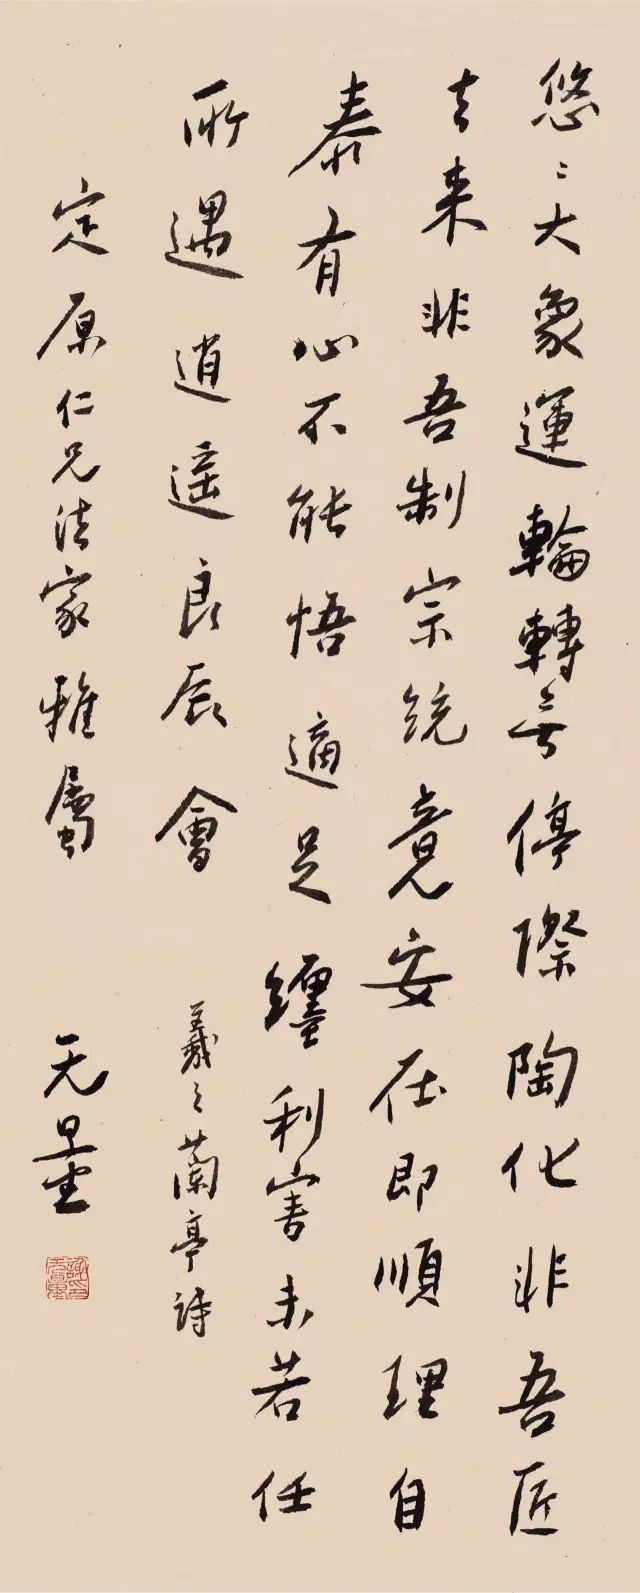 悠〻大象運輪轉無停際陶化非吾匠
去來非吾制宗統竟安在即順理自
泰有心不能悟適足纏利害未若任
所遇逍遥良辰會
羲之蘭亭詩
定原仁兄法家雅屬
无量